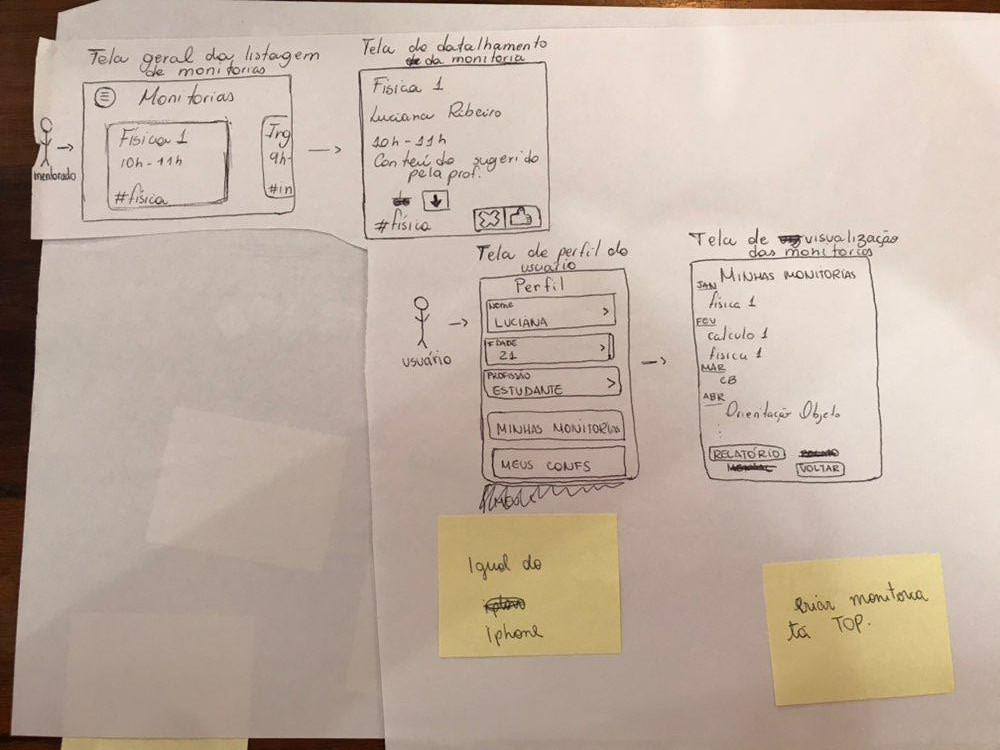 Tela geral da listagem
de monitorias
Monitorias
Física 1
10h - 11h
#física
Ing
9h-
#in
mentorado
Tela de datalhamento
da monitoria
Física 1
Luciana Ribeiro
10h - 11h
Conteúdo sugerido
pela prof.
#física
Tela de perfil do
usuário
usuário
Perfil
NOME
LUCIANA
IDADE
21
PROFISSÃO
ESTUDANTE
MINHAS MONITORIAS
MEUS CONFS
Tela de visualização
das monitorias
MINHAS MONITORIAS
JAN
física 1
FEV
calculo 1
física 1
MAR
CB
ABR
Orientação Objeto
RELATÓRIO
VOLTAR
Igual do
Iphone
criar monitoria
tá TOP.